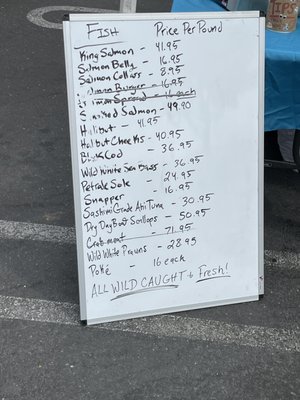 TIPS
FISH Price Per Pound
King Salmon - 41.95
Salmon Belly - 16.95
Salmon Collars - 8.95
Salmon Burger - 16.95
Salmon Spread - 16 each
Smoked Salmon - 49.90
Halibut - 41.95
Halibut Cheeks - 40.95
Black Cod - 36.95
Wild White Sea Bass - 36.95
Petrale Sole - 24.95
Snapper - 16.95
Sashimi Grade Ahi Tuna - 30.95
Dry Day Boat Scallops - 50.95
Crab meat - 71.95
Wild White Prawns - 28.95
Poké - 16 each
ALL WILD CAUGHT & Fresh!